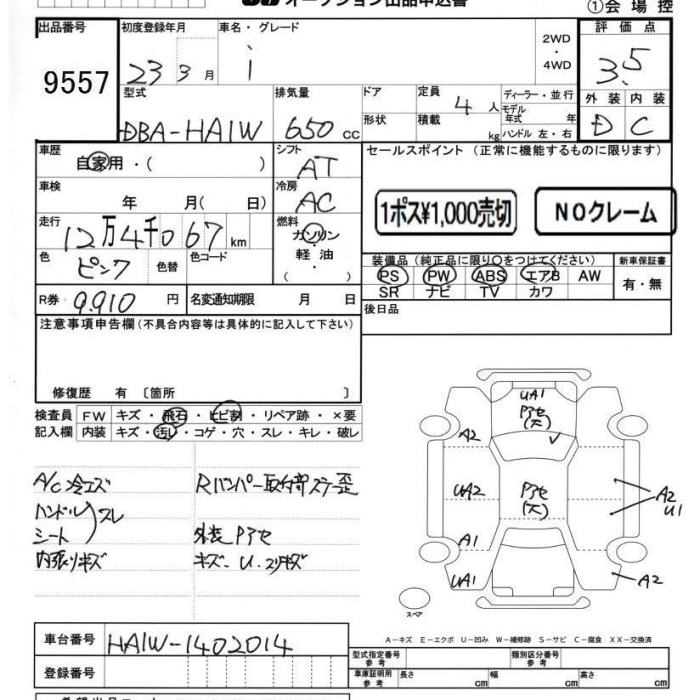 オークション出品申込書
①会場控
出品番号
9557
初度登録年月
23 3月
車名・グレード
i
2WD
・
4WD
評価点
3.5
外装 内装
D C
型式
DBA-HA1W
排気量
650 cc
ドア
形状
定員
4 人
積載
kg
ディーラー・並行
モデル
年式 年
ハンドル 左・右
車歴
自家用・( )
シフト
AT
セールスポイント(正常に機能するものに限ります)
車検
年 月( 日)
冷房
AC
1ポス¥1,000売切
NOクレーム
走行
12万4千067km
燃料
ガソリン
・
軽油
( ・ )
色
ピンク
色替
色コード
装備品(純正品に限り○をつけてください)
新車保証書
PS PW ABS エアB AW
SR ナビ TV カワ
有・無
R券 9.910 円
名変通知期限 月 日
後日品
注意事項申告欄(不具合内容等は具体的に記入して下さい)
修復歴 有 〔箇所 〕
検査員
記入欄
FW キズ・飛石・ヒビ割・リペア跡・×要
内装 キズ・汚レ・コゲ・穴・スレ・キレ・破レ
A/C冷エズ
ハンドル
シート
スレ
内張りキズ
Rバンパー取付部ステー歪
外装Pアセ
キズ・U・スリキズ
UA1
Pアセ
(大)
A2
UA2
Pアセ
(大)
A2
U1
A1
UA1
A2
スペア
A-キズ E-エクボ U-凹み W-補修跡 S-サビ C-腐食 XX-交換済
車台番号
HA1W-1402014
登録番号
型式指定番号
参考
類別区分番号
参考
車庫証明用
参考
長さ cm
幅 cm
高さ cm